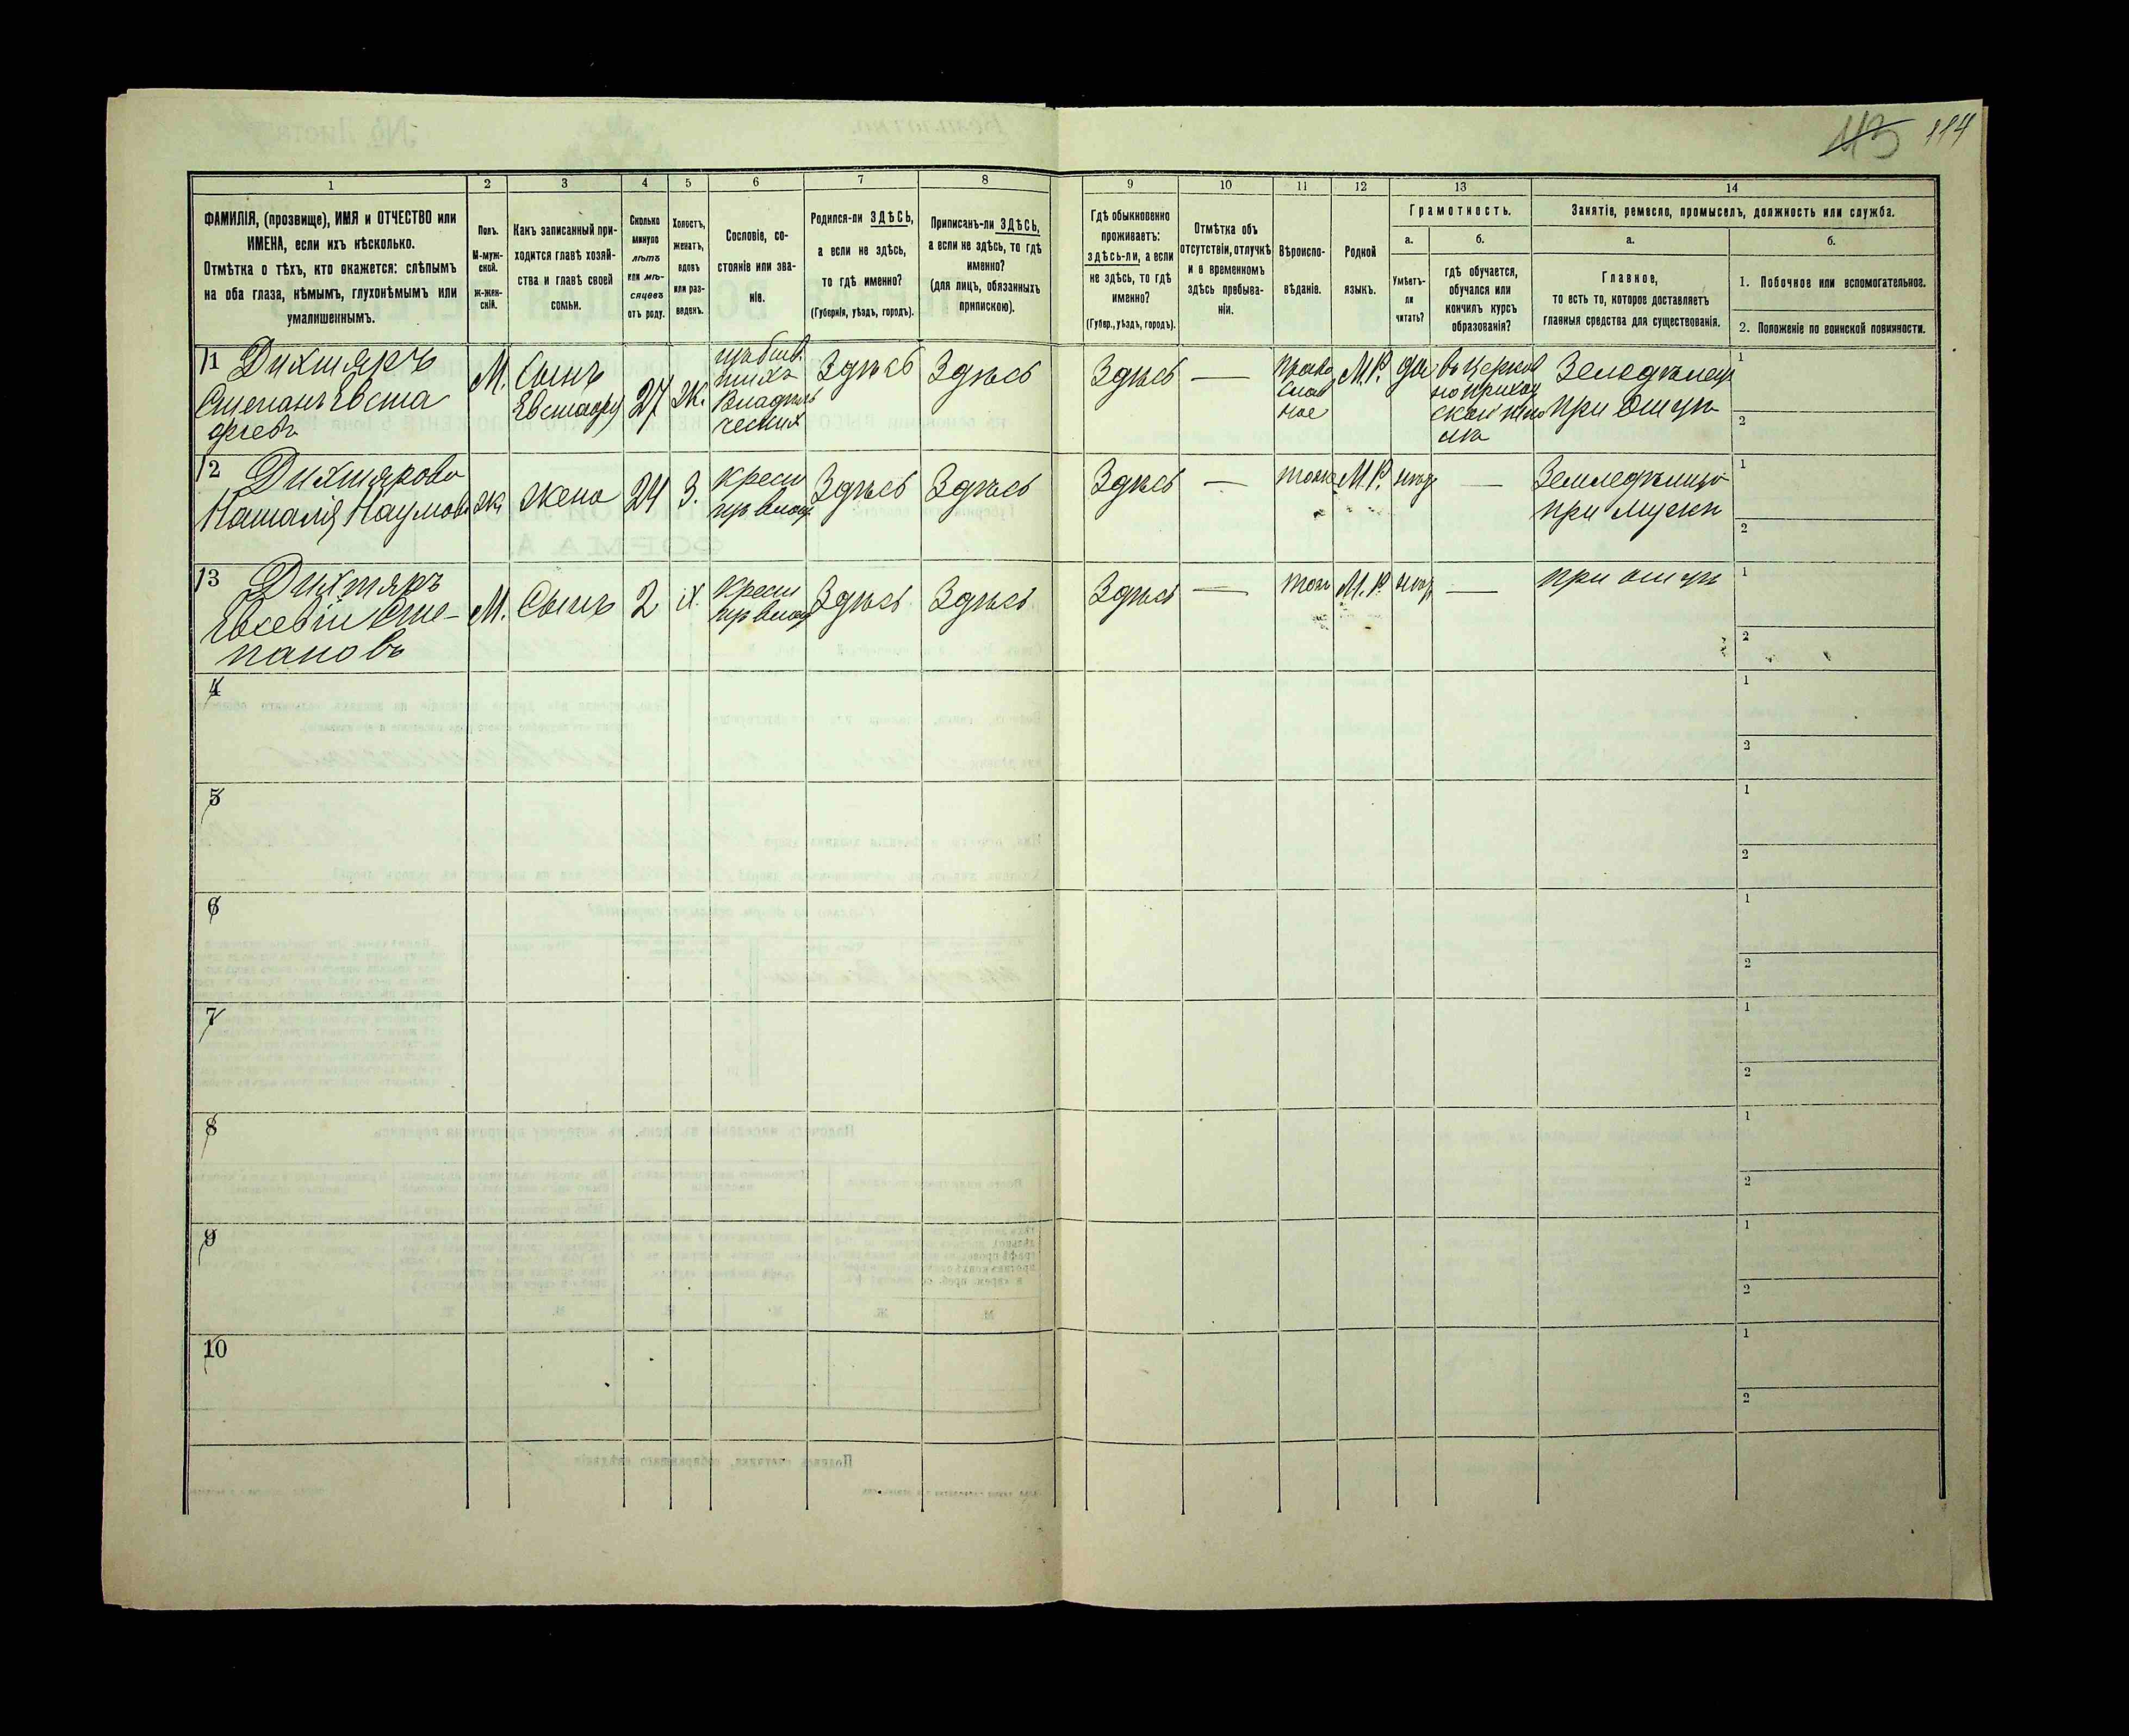 113 114
1 2 3 4 5 6 7 8 9 10 11 12 13 14
ФАМИЛІЯ, (прозвище), ИМЯ и ОТЧЕСТВО или
ИМЕНА, если ихъ нѣсколько.
Отмѣтка о тѣхъ, кто окажется: слѣпымъ
на оба глаза, нѣмымъ, глухонѣмымъ или
умалишеннымъ.
Полъ.
М-муж-
ской.
ж-жен-
скій.
Какъ записанный при-
ходится главѣ хозяй-
ства и главѣ своей
семьи.
Сколько
минуло
лѣтъ
или мѣ-
сяцевъ
отъ роду.
Холостъ,
женатъ,
вдовъ
или раз-
веденъ.
Сословіе, со-
стояніе или зва-
ніе.
Родился-ли ЗДѢСЬ,
а если не здѣсь,
то гдѣ именно?
(Губернія, уѣздъ, городъ).
Приписанъ-ли ЗДѢСЬ,
а если не здѣсь, то гдѣ
именно?
(для лицъ, обязанныхъ
припискою).
Гдѣ обыкновенно
проживаетъ:
здѣсь-ли, а если
не здѣсь, то гдѣ
именно?
(Губер., уѣздъ, городъ).
Отмѣтка объ
отсутствіи, отлучкѣ
и о временномъ
здѣсь пребыва-
ніи.
Вѣроиспо-
вѣданіе.
Родной
языкъ.
Грамотность.
а.
Умѣетъ-
ли
читать?
б.
гдѣ обучается,
обучался или
кончилъ курсъ
образованія?
Занятіе, ремесло, промыселъ, должность или служба.
а.
Главное,
то есть то, которое доставляетъ
главныя средства для существованія.
б.
1. Побочное или вспомогательное.
2. Положеніе по воинской повинности.
1 Дихтяръ
Степанъ Евста
фіевъ
М.
Сынъ
27
Ж.
Здѣсь
Здѣсь
Здѣсь
—
Право
слав
ное
М.Р.
да
въ Церков
но приход
1
2
2 Дихтярова
Наталія Наумова
ж
жена
24
З.
Крест
Здѣсь
Здѣсь
Здѣсь
—
тоже
М.Р.
нѣт
—
при мужѣ
1
2
3 Дихтяръ
Евсевій Сте-
пановъ
М.
Сынъ
2
х.
Крест
Здѣсь
Здѣсь
Здѣсь
—
тоже
М.Р.
нѣт
—
при отцѣ
1
2
4
1
2
5
1
2
6
1
2
7
1
2
8
1
2
9
1
2
10
1
2